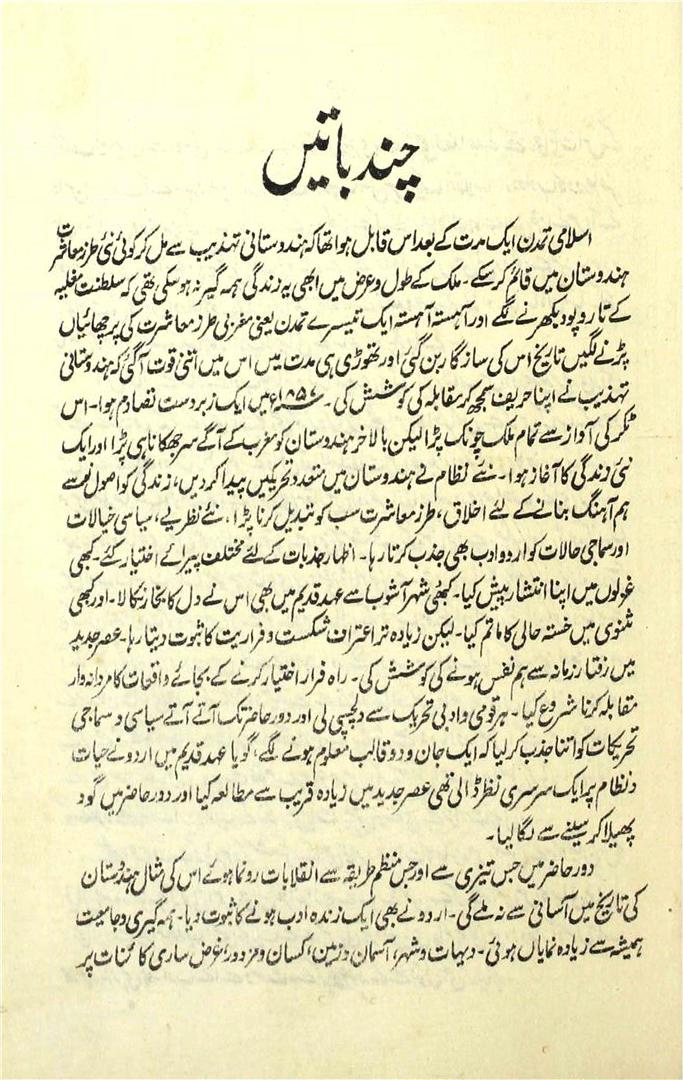 چند باتیں
اسلامی تمدن ایک مدت کے بعد اس قابل ہوا تھا کہ ہندوستانی تہذیب سے مل کر کوئی نئی طرز معاشرت
ہندوستان میں قائم کر سکے۔ ملک کے طول و عرض میں ابھی یہ زندگی ہمہ گیر نہ ہو سکی تھی کہ سلطنت مغلیہ
کے تار و پود بکھرنے لگے اور آہستہ آہستہ ایک تیسرے تمدن یعنی مغربی طرز معاشرت کی پرچھائیاں
پڑنے لگیں تاریخ اس کی سازگار بن گئی اور تھوڑی ہی مدت میں اس میں اتنی قوت آ گئی کہ ہندوستانی
تہذیب نے اپنا حریف سمجھ کر مقابلہ کی کوشش کی۔ ۱۸۵۷ء میں ایک زبردست تصادم ہوا۔ اس
ٹکر کی آواز سے تمام ملک چونک پڑا لیکن بالآخر ہندوستان کو مغرب کے آگے سر جھکانا ہی پڑا اور ایک
نئی زندگی کا آغاز ہوا۔ نئے نظام نے ہندوستان میں متعدد تحریکیں پیدا کر دیں، زندگی کو اصول نو سے
ہم آہنگ بنانے کے لئے اخلاق، طرز معاشرت سب کو تبدیل کرنا پڑا، نئے نظریے، سیاسی خیالات
اور سماجی حالات کو اردو ادب بھی جذب کرتا رہا۔ اظہار جذبات کے لئے مختلف پیرائے اختیار کئے۔ کبھی
غزلوں میں اپنا انتشار پیش کیا۔ کبھی شہر آشوب سے عہد قدیم میں بھی اس نے دل کا بخار نکالا۔ اور کبھی
مثنوی میں خستہ حالی کا ماتم کیا۔ لیکن زیادہ تر اعتراف شکست و فراریت کا ثبوت دیتا رہا۔ عصر جدید
میں رفتار زمانہ سے ہم نفس ہونے کی کوشش کی۔ راہ فرار اختیار کرنے کے بجائے واقعات کا مردانہ وار
مقابلہ کرنا شروع کیا۔ ہر قومی و ادبی تحریک سے دلچسپی لی اور دور حاضر تک آتے آتے سیاسی و سماجی
تحریکات کو اتنا جذب کر لیا کہ ایک جان و دو قالب معلوم ہونے لگے، گویا عہد قدیم میں اردو نے حیات
و نظام پر ایک سرسری نظر ڈالی تھی عصر جدید میں زیادہ قریب سے مطالعہ کیا اور دور حاضر میں گود
پھیلا کر سینے سے لگا لیا۔
دور حاضر میں جس تیزی سے اور جس منظم طریقہ سے انقلابات رونما ہوئے اس کی مثال ہندوستان
کی تاریخ میں آسانی سے نہ ملے گی۔ اردو نے بھی ایک زندہ ادب ہونے کا ثبوت دیا۔ ہمہ گیری و جامعیت
ہمیشہ سے زیادہ نمایاں ہوئی۔ دیہات و شہر، آسمان و زمین، کسان و مزدور، غرض ساری کائنات پر